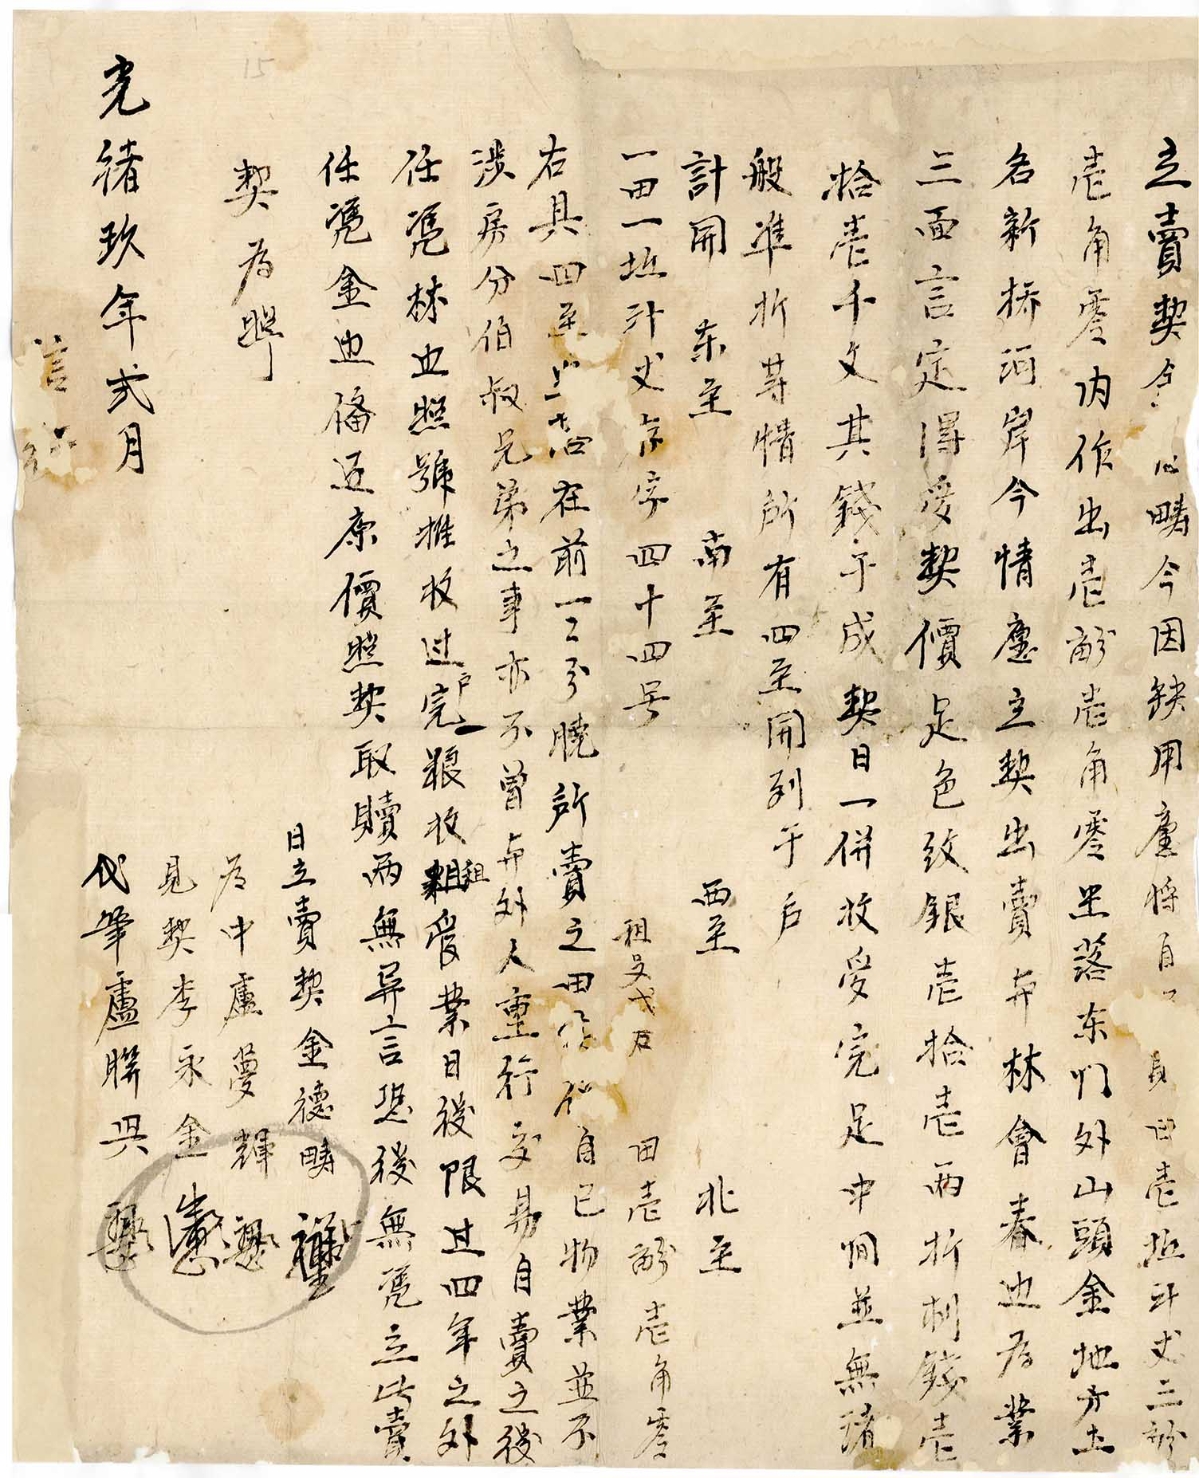 立賣契金 疇今因缺用廑將自 田壱坵計丈三畝
壱角零内作出壱畝壱角零坐落东门外山頭金地方土
名新桥河岸今情廑立契出賣与林會春边为業
三面言定得受契價足色纹銀壱拾壱两折制錢壱
拾壱千文其錢于成契日一併收受完足中间並無諸
般準折等情所有四至開列于后
計開 东至 南至 西至 北至
一田一坵計丈 字四十四号 租 田壱畝壱角零
右具四至 在前一二分曉所賣之田 自已物業並不
涉房分伯叔兄弟之事亦不曾与外人重行交易自賣之後
任凭林边照號推收过户完粮收租受業日後限过四年之外
任凭金边俻还原價照契取贖两無异言恐後無凭立此賣
契为照
光緒玖年弍月
日立賣契金德疇
为中盧夢輝
見契李永金
代筆盧聨興